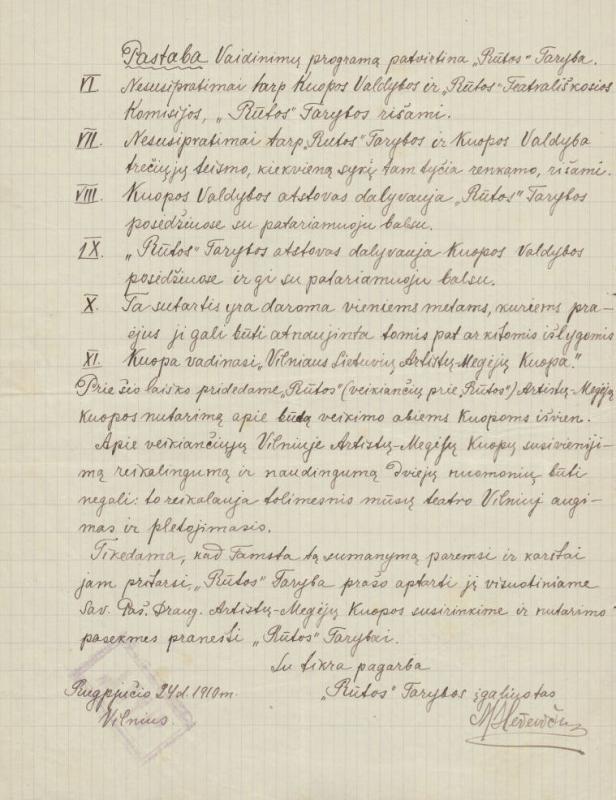 Pastaba Vaidinimų programą patvirtina „Rūtos" Taryba.
VI. Nesusipratimai tarp Kuopos Valdybos ir „Rūtos" Teatrališkosios
Komisijos, „Rūtos" Tarybos rišami.
VII. Nesusipratimai tarp „Rutos" Tarybos ir Kuopos Valdyba
trečiųjų teismo, kiekvieną sykį tam tyčia renkamo, rišami.
VIII. Kuopos Valdybos atstovas dalyvauja „Rūtos" Tarybos
posėdžiuose su patariamuoju balsu.
IX. „Rūtos" Tarybos atstovas dalyvauja Kuopos Valdybos
posėdžiuose ir gi su patariamuoju balsu.
X. Ta sutartis yra daroma vieniems metams, kuriems pra-
ėjus ji gali būti atnaujinta tomis pat ar kitomis išlygomis
XI. Kuopa vadinasi „Vilniaus Lietuvių Artistų-Megėjų Kuopa."
Prie šio laiško pridedame „Rūtos" (veikiančių prie „Rūtos") Artistų-Megėjų
Kuopos nutarimą apie būdą veikimo abiems Kuopoms išvien.
Apie veikiančiųjų Vilniuje Artistų-Megėjų Kuopų susivieniji-
mą reikalingumą ir naudingumą dviejų nuomonių būti
negali: to reikalauja tolimesnis mūsų teatro Vilniuj augi-
mas ir plėtojimasis.
Tikėdama, kad Tamsta tą sumanymą paremsi ir karštai
jam pritarsi, „Rūtos" Taryba prašo aptarti jį visuotiniame
Sav. Paš. Draug. Artistų-Megėjų Kuopos susirinkime ir nutarimo
pasekmes pranešti „Rūtos" Tarybai.
Su tikra pagarba
Rugpjučio 24 d. 1910 m. „Rūtos" Tarybos įgaliotas
Vilnius.